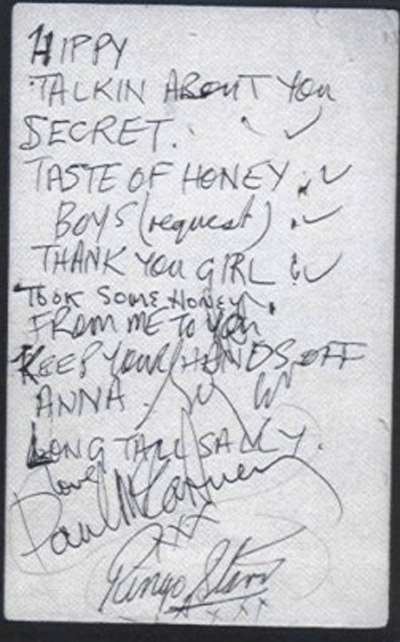 HIPPY
TALKIN ABOUT YOU
SECRET.
TASTE OF HONEY
BOYS (request)
THANK YOU GIRL
TOOK SOME HONEY
FROM ME TO YOU
KEEP YOUR HANDS OFF
ANNA
LONG TALL SALLY.
love
Paul McCartney
xxx
Ringo Starr
xxxx